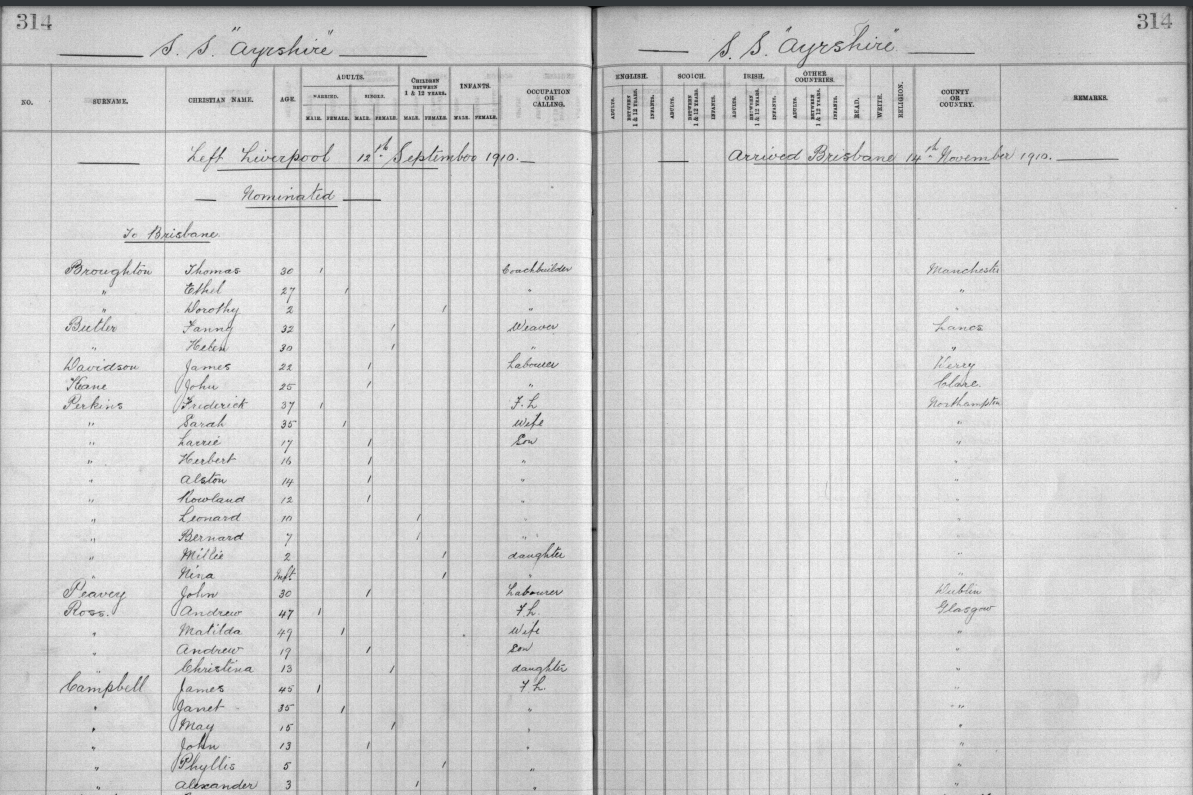 314 314
S. S. "Ayrshire" S. S. "Ayrshire"
NO. SURNAME. CHRISTIAN NAME. AGE. ADULTS. MARRIED. SINGLE. MALE. FEMALE. MALE. FEMALE. CHILDREN BETWEEN 1 & 12 YEARS. MALE. FEMALE. INFANTS. MALE. FEMALE. OCCUPATION OR CALLING. ENGLISH. ADULTS. BETWEEN 1 & 12 YEARS. INFANTS. SCOTCH. ADULTS. BETWEEN 1 & 12 YEARS. INFANTS. IRISH. ADULTS. BETWEEN 1 & 12 YEARS. INFANTS. OTHER COUNTRIES. ADULTS. BETWEEN 1 & 12 YEARS. INFANTS. READ. WRITE. RELIGION. COUNTY OR COUNTRY. REMARKS.
Left Liverpool 12th September 1910. Arrived Brisbane 14th November 1910.
Nominated
To Brisbane.
Broughton Thomas 30 1 Coachbuilder Manchester
" Ethel 27 1 " "
" Dorothy 2 1 "
Butler Fanny 32 1 Weaver Lancs
" Helen 30 1 " "
Davidson James 22 1 Labourer Kerry
Kane John 25 1 " Clare.
Perkins Frederick 37 1 F. L Northampton
" Sarah 35 1 Wife "
" 17 1 Son "
" Herbert 16 1 " "
" Alston 14 1 " "
" Rowland 12 1 " "
" Leonard 10 1 " "
" Bernard 7 1 " "
" Millie 2 1 daughter "
" Nina Inft 1 " "
Peavey John 30 1 Labourer Dublin
Ross. Andrew 47 1 F L. Glasgow
" Matilda 49 1 Wife "
" Andrew 19 1 Son "
" Christina 13 1 daughter "
Campbell James 45 1 F L. "
" Janet 35 1 " "
" May 15 1 " "
" John 13 1 " "
" Phyllis 5 1 " "
" Alexander 3 1 " "